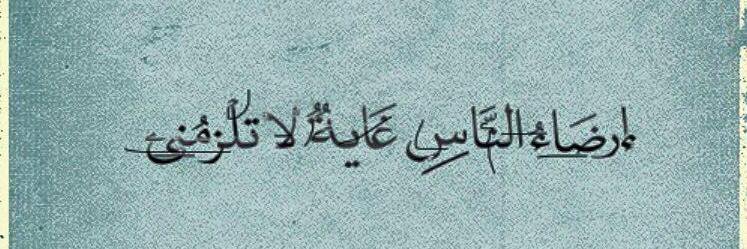 إِرضَاءُ النَّاسِ غَايةٌ لا تَلْزمُني